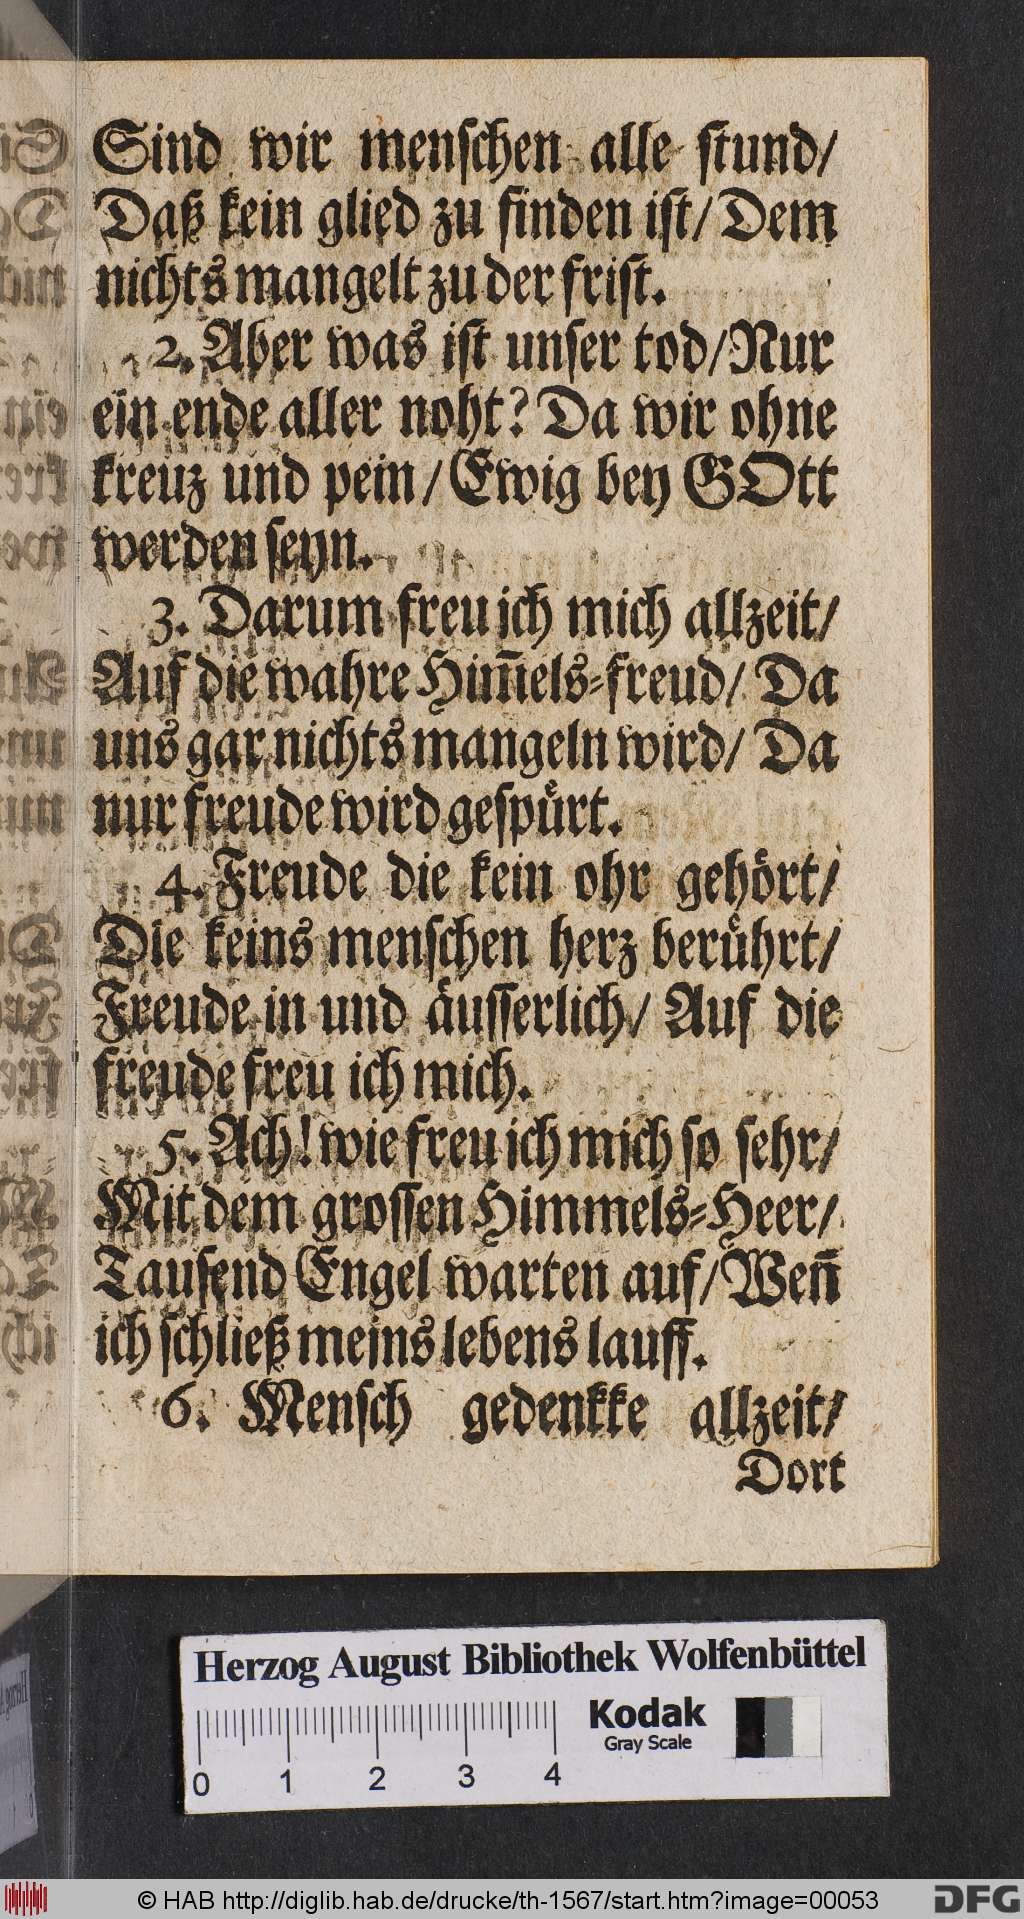 Sind wir menschen alle stund/
Daß kein glied zu finden ist/ Dem
nichts mangelt zu der frist.
2. Aber was ist unser tod/ Nur
ein ende aller noht? Da wir ohne
kreuz und pein/ Ewig bey GOtt
werden seyn.
3. Darum freu ich mich allzeit/
Auf die wahre Him̃els-freud/ Da
uns gar nichts mangeln wird/ Da
nur freude wird gespürt.
4. Freude die kein ohr gehört/
Die keins menschen herz berührt/
Freude in und äusserlich/ Auf die
freude freu ich mich.
5. Ach! wie freu ich mich so sehr/
Mit dem grossen Himmels-Heer/
Tausend Engel warten auf/ Weñ
ich schließ meins lebens lauff.
6. Mensch gedenkke allzeit/
Dort
Herzog August Bibliothek Wolfenbüttel
Kodak
Gray Scale
0 1 2 3 4
© HAB http://diglib.hab.de/drucke/th-1567/start.htm?image=00053
DFG